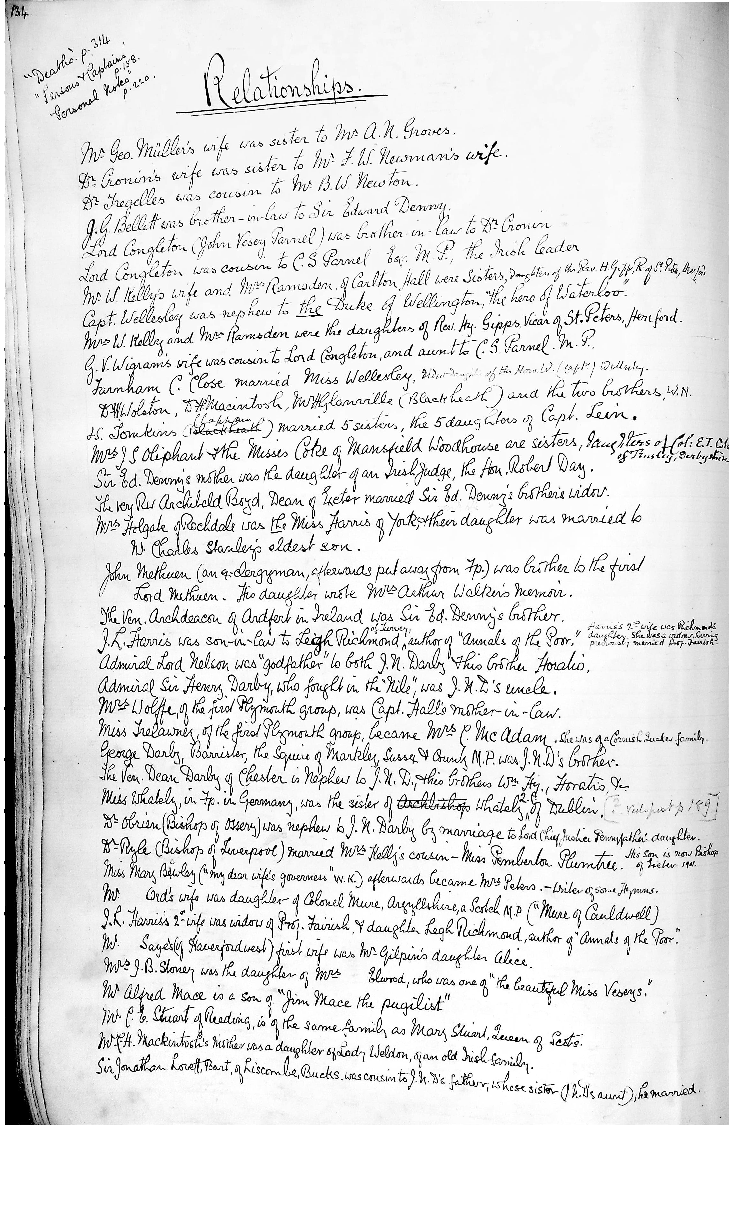 134
"Deaths" p. 314
"Persons & Captains,
p. 158.
Personal Notes"
p. 220.
Relationships.
Mr Geo. Müller's wife was sister to Mr A. N. Groves.
Dr Cronin's wife was sister to Mr F. W. Newman's wife.
Dr Tregelles was cousin to Mr B. W. Newton.
J. G. Bellett was brother-in-law to Sir Edward Denny.
Lord Congleton (John Vesey Parnel) was brother in-law to Dr Cronin
Lord Congleton was cousin to C. S Parnel Esq. M. P., the Irish leader
Mr W Kelly's wife and Mrs Ramsden, of Carlton Hall were Sisters, Daughters of the Rev. H. Gipps, R. of St Peters,
Capt. Wellesley was nephew to the Duke of Wellington, "the hero of Waterloo".
Mrs W. Kelly and Mrs Ramsden were the daughters of Rev. Hy. Gipps, Vicar of St. Peters, Hereford.
G. V. Wigram's wife was cousin to Lord Congleton, and aunt to C. S Parnel. M. P.
Farnham C. Close married Miss Wellesley, daughter of the Hon. W. (Capt) Wellesley.
Dr H Wolston, Dr H Macintosh, Mr H Glanville (Blackheath) and the two brothers, W. N.
H. Tomkins (Blackheath) married 5 sisters, the 5 daughters of Capt. Lein.
Mrs J S Oliphant & the Misses Coke of Mansfield Woodhouse are sisters, daughters of Col. E. T. Coke
of Trusley, Derbyshire
Sir Ed. Denny's mother was the daughter of an Irish Judge, the Hon. Robert Day.
The very Rev Archibald Boyd, Dean of Exeter married Sir Ed. Denny's brother's widow.
Mrs Holgate of Rochdale was the Miss Harris of York & their daughter was married to
Mr Charles Stanley's eldest son.
John Methuen (an ex-clergyman, afterwards put away from Fp.) was brother to the first
Lord Methuen. His daughter wrote Mrs Arthur Walkin's Memoir.
The Ven. Archdeacon of Ardfert in Ireland was Sir Ed. Denny's brother.
J. L. Harris was son-in-law to Legh Richmond, of Turvey, author of "Annals of the Poor."
Harris's 2nd wife was Richmond's
daughter. She was a widow, having
previously married Prof. Farish.
Admiral Lord Nelson was "godfather" to both J. N. Darby & his brother Horatio.
Admiral Sir Henry Darby, who fought in the "Nile", was J. N. D's uncle.
Mrs Wolffe, of the first Plymouth group, was Capt. Hall's mother-in-law.
Miss Trelawney, of the first Plymouth group, became Mrs C. McAdam. She was of a Cornish Quaker family.
George Darby, Barrister, the Squire of Markley, Sussex & County M. P. was J. N. D's brother.
The Ven. Dean Darby of Chester is Nephew to J. N. D., & his brothers Wm Hy., Horatio &c
Miss Whately, in Fp. in Germany, was the sister of Archbishop Whately, of Dublin.
Dr Obrien (Bishop of Ossery) was nephew to J. N. Darby by marriage to Lord Chief Justice Pennyfather's daughter.
Dr Ryle (Bishop of Liverpool) married Mrs Kelly's cousin - Miss Pemberton Plumtree. His son is now Bishop
of Exeter 1901.
Miss Mary Bowley ("my dear wife's governess" W. K.) afterwards became Mrs Peters. - Writer of some Hymns.
Mr Ord's wife was daughter of Colonel Mure, Argyllshire, a Scotch M. P. ("Mure of Cauldwell)
J. L. Harris's 2nd wife was widow of Prof. Farrish, & daughter Legh Richmond, author of "Annals of the Poor."
Mr Sayes (of Haverfordwest) first wife was Mr Gilpin's daughter Alice.
Mrs J. B. Stoney was the daughter of Mrs Elwood, who was one of "the beautiful Miss Veseys."
Mr Alfred Mace is a son of "Jim Mace the pugilist"
Mr C. E. Stuart of Reading, is of the same family as Mary Stuart, Queen of Scots.
Mr C. H. Mackintosh's Mother was a daughter of Lady Weldon, of an old Irish family.
Sir Jonathan Lovett, Bart, of Liscombe, Bucks. was cousin to J. N. D's father, whose sister (J. N. D's aunt), he married.